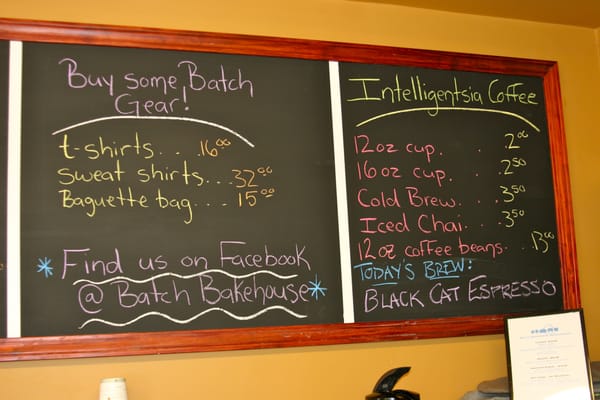 Buy some Batch
Gear!
t-shirts... 16.00
sweat shirts... 32.00
Baguette bag... 15.00
Find us on Facebook
@ Batch Bakehouse
Intelligentsia Coffee
12oz cup. . . 2.00
16oz cup. . . 2.50
Cold Brew. . . 3.50
Iced Chai. . . 3.50
12oz coffee beans. . 13.00
TODAY'S BREW:
BLACK CAT ESPRESSO